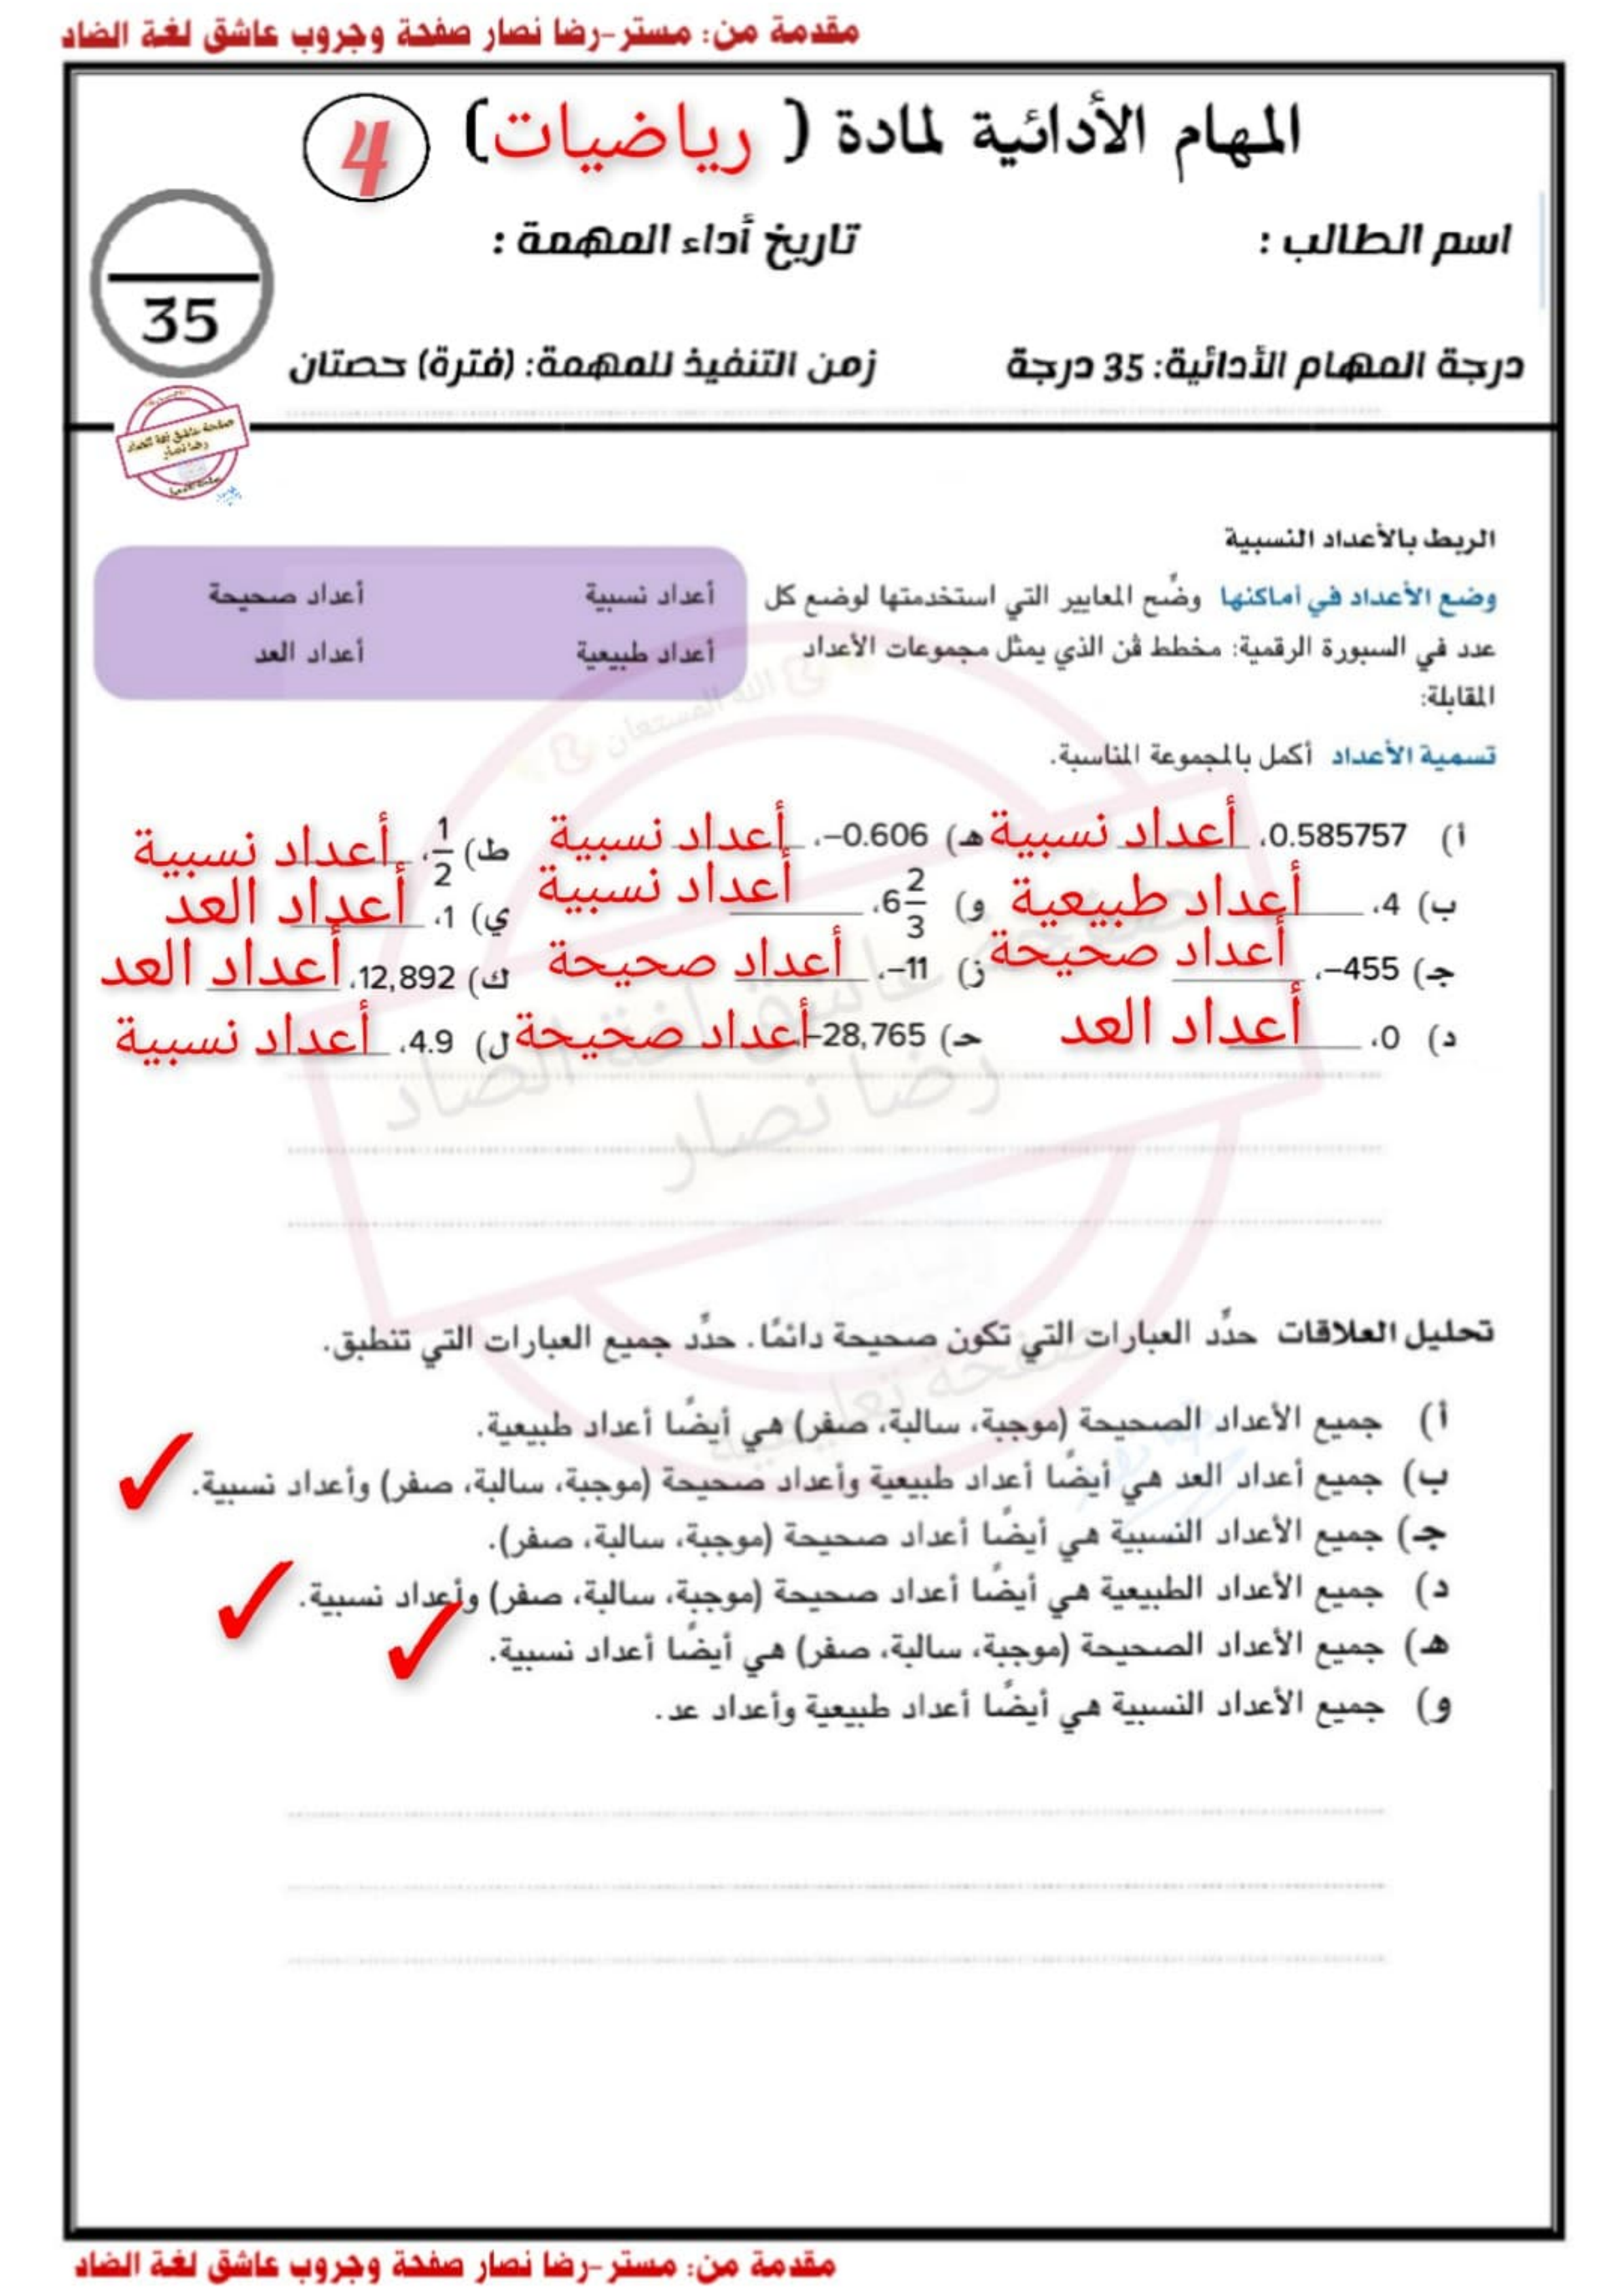 مقدمة من: مستر-رضا نصار صفحة وجروب عاشق لغة الضاد
المهام الأدائية لمادة ( رياضيات) 4
اسم الطالب : تاريخ أداء المهمة :
35
درجة المهام الأدائية: 35 درجة زمن التنفيذ للمهمة: (فترة) حصتان
صفحة عاشق لغة الضاد
رضا نصار
الربط بالأعداد النسبية
وضع الأعداد في أماكنها وضِّح المعايير التي استخدمتها لوضع كل
عدد في السبورة الرقمية: مخطط ڤن الذي يمثل مجموعات الأعداد
المقابلة:
أعداد نسبية أعداد صحيحة
أعداد طبيعية أعداد العد
تسمية الأعداد أكمل بالمجموعة المناسبة.
أ) 0.585757، أعداد نسبية هـ) −0.606، أعداد نسبية ط) 1/2، أعداد نسبية
ب) 4، أعداد طبيعية و) 6 2/3، أعداد نسبية ي) 1، أعداد العد
جـ) −455، أعداد صحيحة ز) −11، أعداد صحيحة ك) 12,892، أعداد العد
د) 0، أعداد العد حـ) −28,765، أعداد صحيحة ل) 4.9، أعداد نسبية
الله المستعان
صفحة عاشق لغة الضاد
رضا نصار
صفحة تعليمية
تحليل العلاقات حدِّد العبارات التي تكون صحيحة دائمًا. حدِّد جميع العبارات التي تنطبق.
أ) جميع الأعداد الصحيحة (موجبة، سالبة، صفر) هي أيضًا أعداد طبيعية.
ب) جميع أعداد العد هي أيضًا أعداد طبيعية وأعداد صحيحة (موجبة، سالبة، صفر) وأعداد نسبية. ✓
جـ) جميع الأعداد النسبية هي أيضًا أعداد صحيحة (موجبة، سالبة، صفر).
د) جميع الأعداد الطبيعية هي أيضًا أعداد صحيحة (موجبة، سالبة، صفر) وأعداد نسبية. ✓
هـ) جميع الأعداد الصحيحة (موجبة، سالبة، صفر) هي أيضًا أعداد نسبية. ✓
و) جميع الأعداد النسبية هي أيضًا أعداد طبيعية وأعداد عد.
مقدمة من: مستر-رضا نصار صفحة وجروب عاشق لغة الضاد